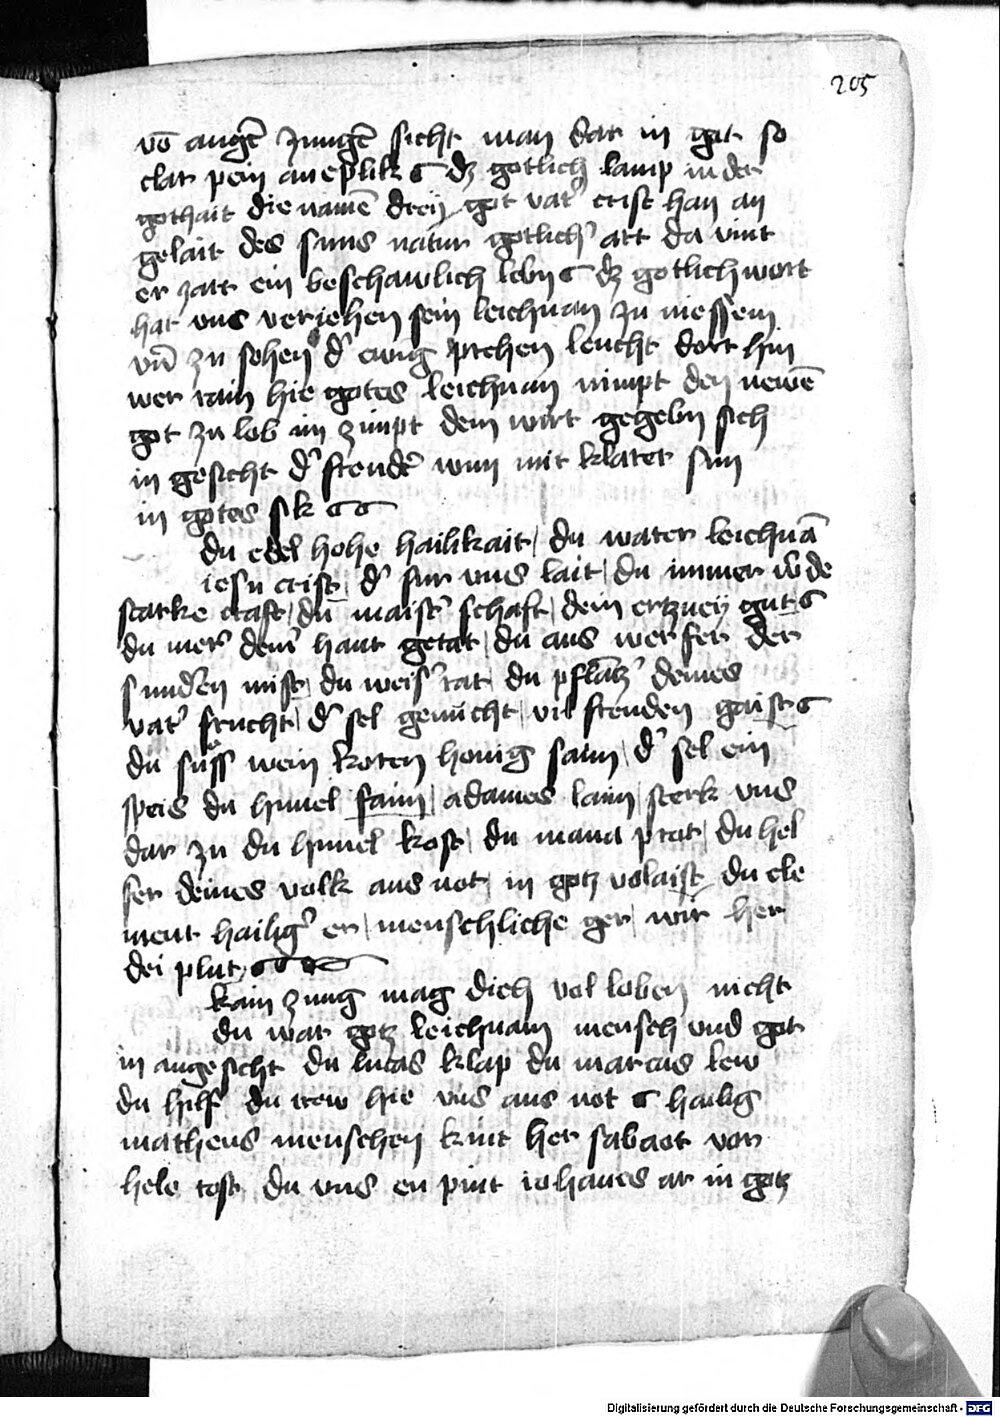 205
vō augē zungē sicht man dar in got so
clar pein aneplik dz gotlich lamp in der
gothait die namē dreÿ got vat' crist han an
gelait des suns natur gotlich' art da vint
er zart ein beschawlich lebn dz gotlich wort
hat uns veriehen sein leichnan zu niessem
vn̄ zu sehen d' ewig prehen leucht dort hin
wer rain hie gotes leichnan nimpt den newē
got zu lob im zimpt dem wirt gegebn sich
in gesicht d' freudē wun mit klarer sun
in gotes sk
du edel hohe hailikait du warer leichnā
iesu crist d' fur uns lait du immer w̄de
starke craft du maist' schaft dein ertzney gut
du mer' dem' haut getat du aus werfer der
sunden mist du weis' rat du pflātz' deines
vat' frucht d' sel genūcht vil freuden gaist
du suss wein koren honig sam d' sel ein
speis du himel faim adames laim sterk uns
dar zu du himel kost du mana prot du hel
fer deines volk aus not in gotz volaist du ele
ment hailig' er menschliche ger wir her
dei plut
kain zung mag dich vol loben nicht
du war gotz leichnam mensch und got
in angesicht du lucas klap du marcus lew
du hilf du trew hie uns aus not hailig
matheus menschen kint her sabaot vor
hele rost du uns en pint iohanes ar in gotz
Digitalisierung gefördert durch die Deutsche Forschungsgemeinschaft - DFG